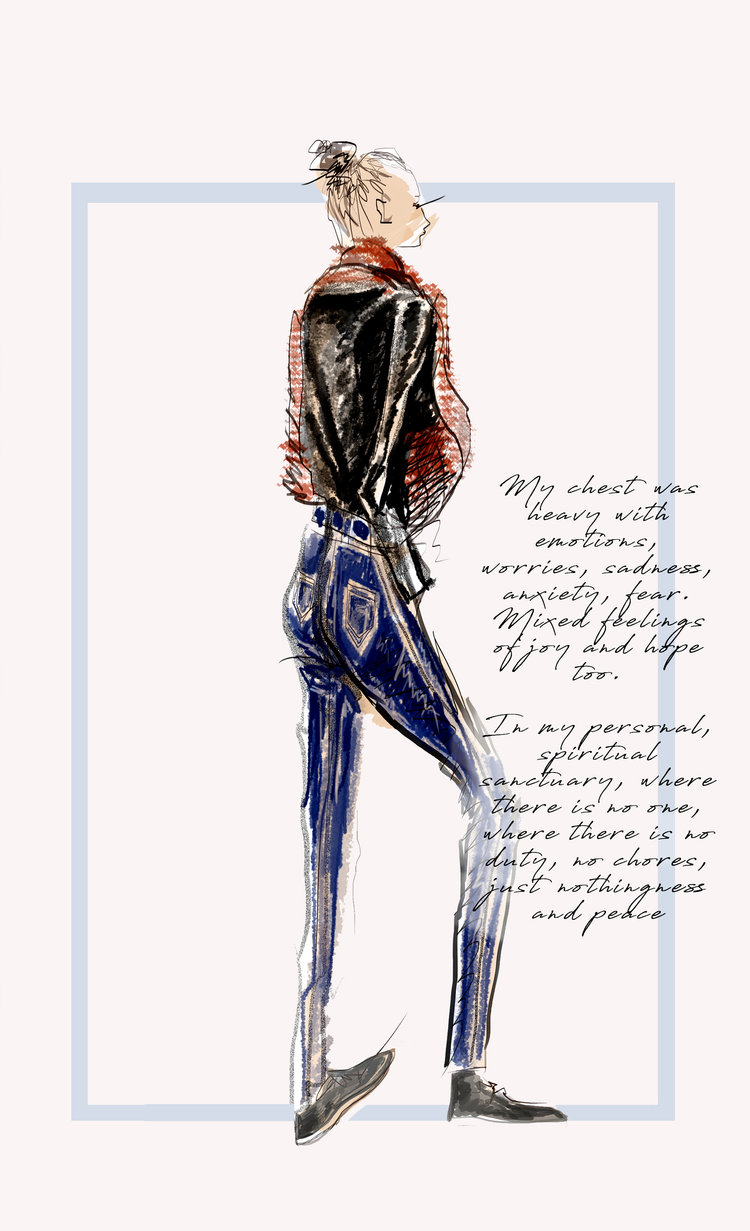 My chest was
heavy with
emotions,
worries, sadness,
anxiety, fear.
Mixed feelings
of joy and hope
too.
In my personal,
spiritual
sanctuary, where
there is no one,
where there is no
duty, no chores,
just nothingness
and peace